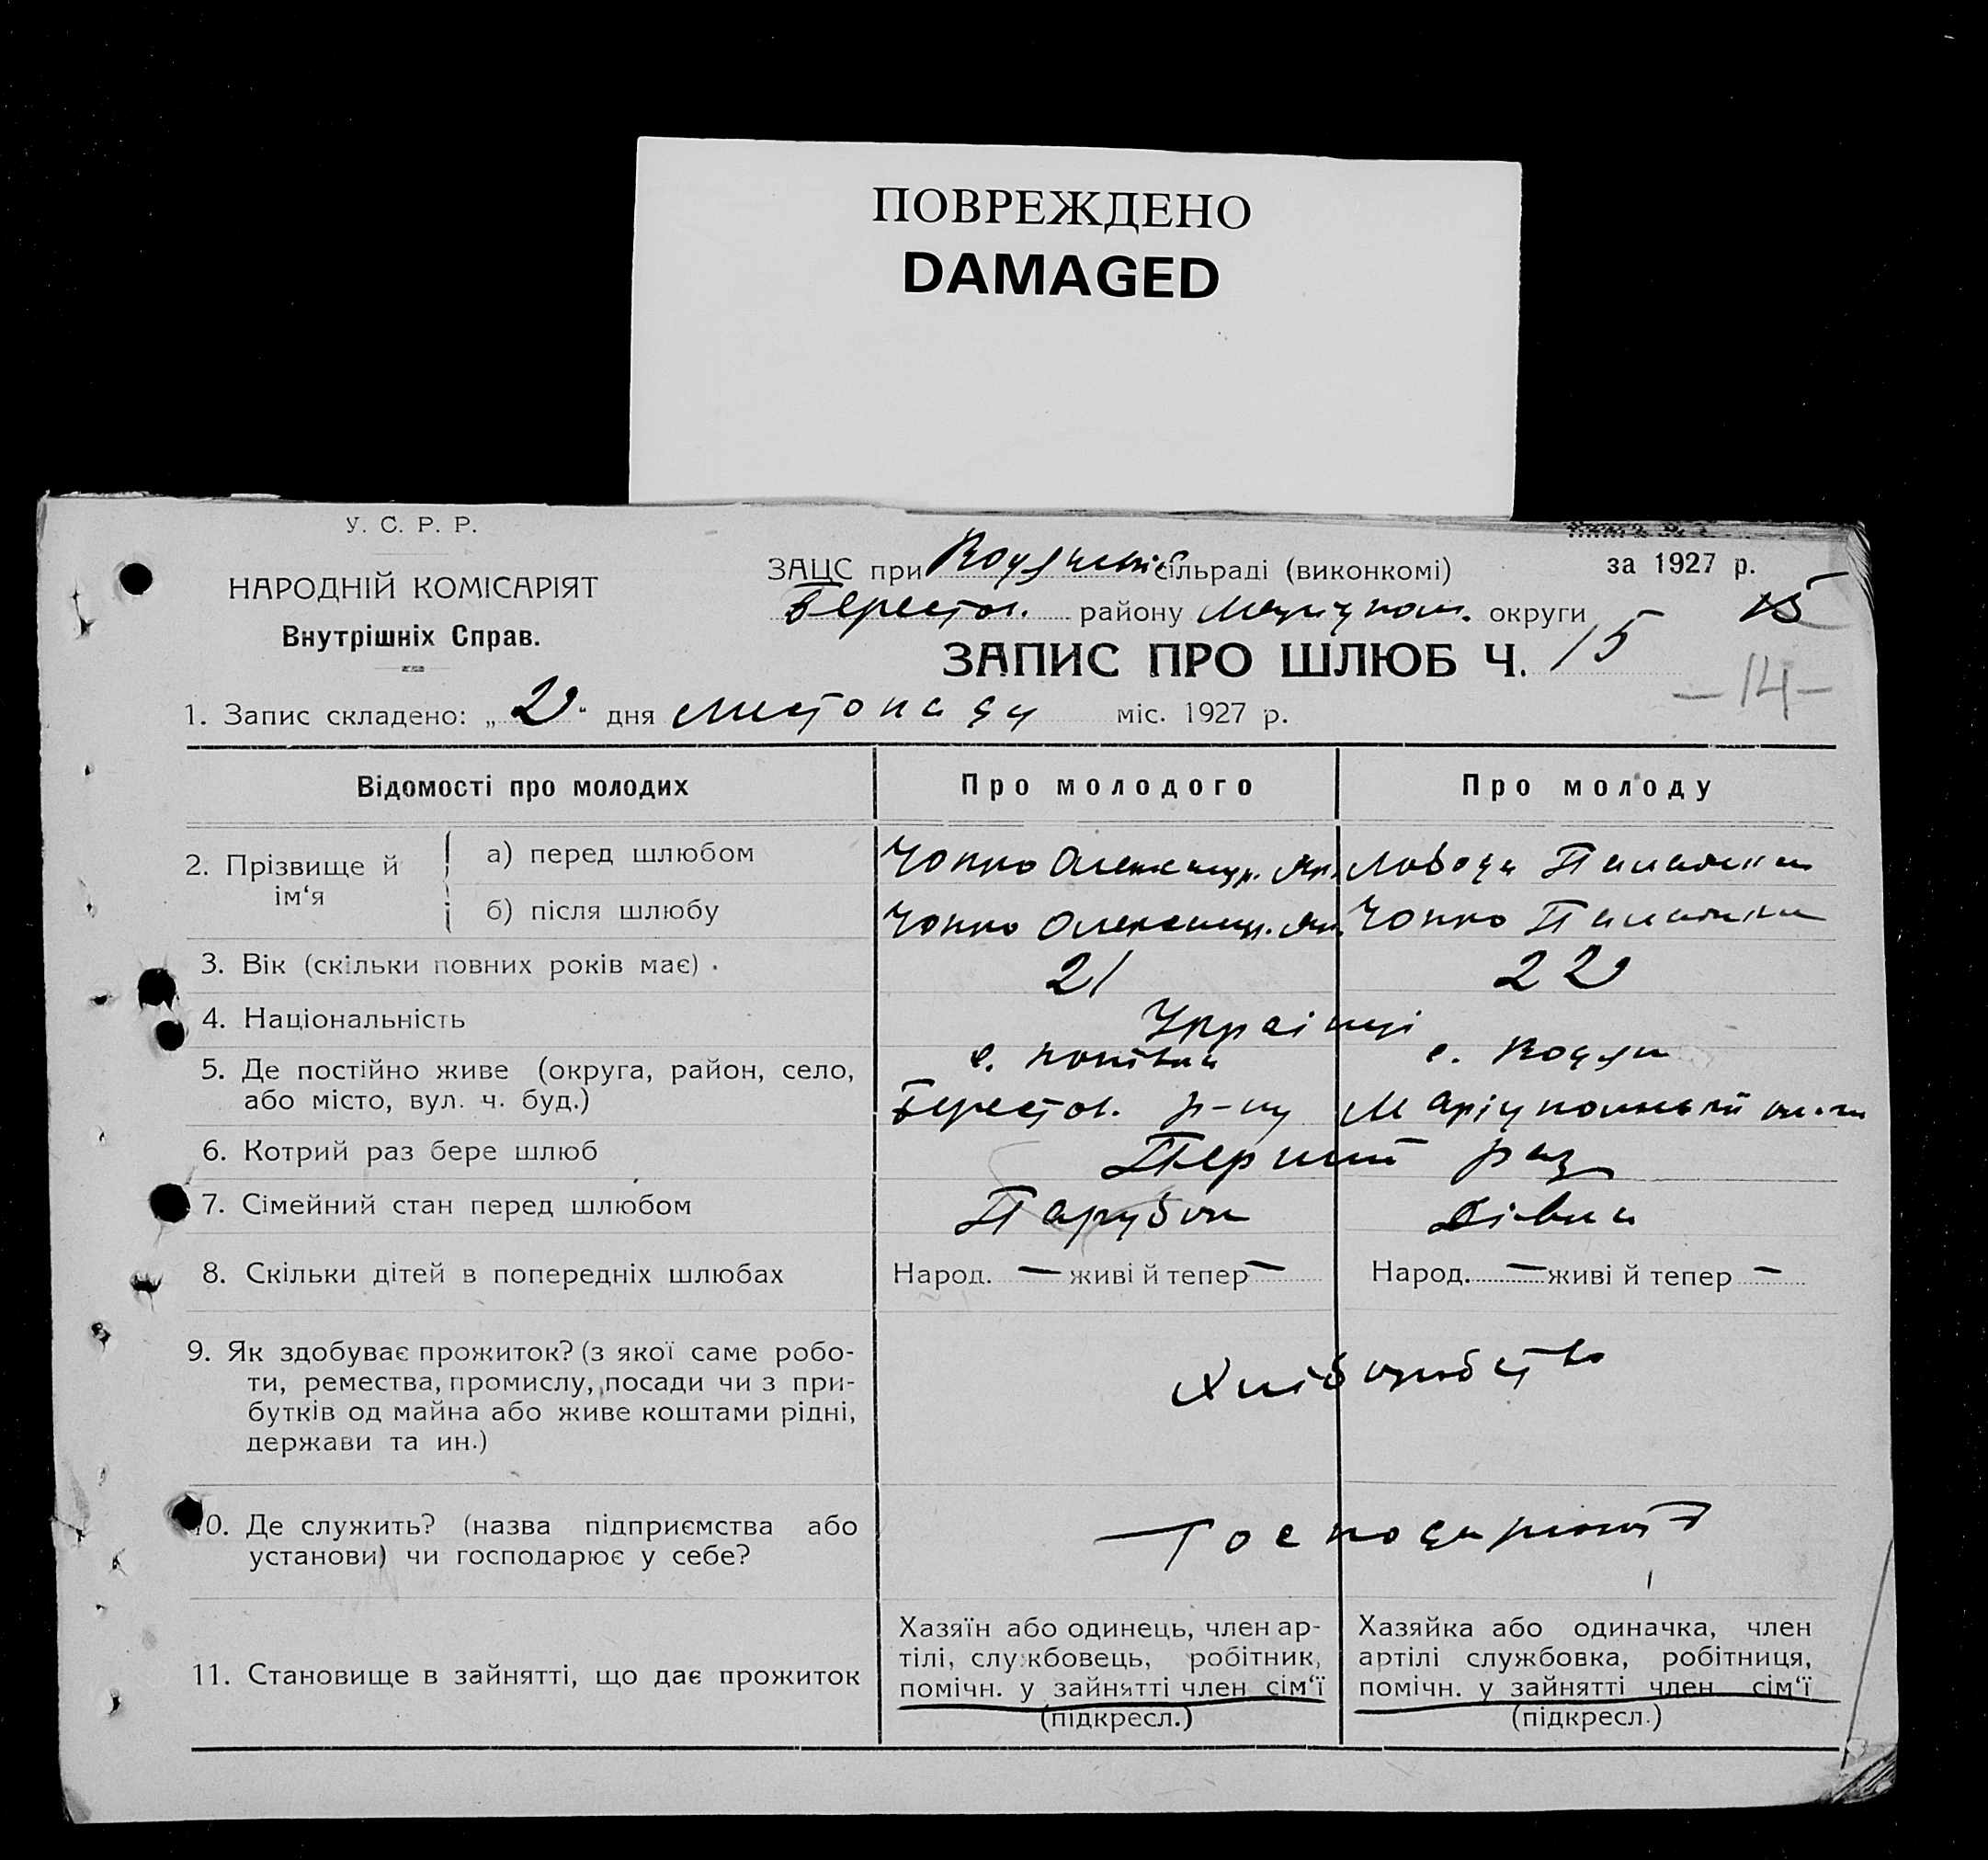 ПОВРЕЖДЕНО
DAMAGED
У. С. Р. Р.
НАРОДНІЙ КОМІСАРІЯТ
Внутрішніх Справ.
ЗАЦС при Водянській сільраді (виконкомі)
за 1927 р.
Берестов. району Маріупол. округи
15
ЗАПИС ПРО ШЛЮБ Ч. 15
-14-
1. Запис складено: „2" дня листопаду міс. 1927 р.
Відомості про молодих
Про молодого
Про молоду
2. Прізвище й ім‘я
а) перед шлюбом
Чопко Олександр. Як.
Лобода Палажка
б) після шлюбу
Чопко Олександр. Як.
Чопко Палажка
3. Вік (скільки повних років має) .
21
22
4. Національність
Українці
5. Де постійно живе (округа, район, село,
або місто, вул. ч. буд.)
с. Попівка
с. Водян
Берестов. р-ну
Маріупольський
6. Котрий раз бере шлюб
Перший раз
7. Сімейний стан перед шлюбом
Парубок
Дівка
8. Скільки дітей в попередніх шлюбах
Народ. — живі й тепер —
Народ. — живі й тепер —
9. Як здобуває прожиток? (з якої саме робо-
ти, ремества, промислу, посади чи з при-
бутків од майна або живе коштами рідні,
держави та ин.)
Хліборобство
10. Де служить? (назва підприємства або
установи) чи господарює у себе?
Господарюють
11. Становище в зайнятті, що дає прожиток
Хазяїн або одинець, член ар-
тілі, службовець, робітник,
помічн. у зайнятті член сім‘ї
(підкресл.)
Хазяйка або одиначка, член
артілі службовка, робітниця,
помічн. у зайнятті член сім‘ї
(підкресл.)